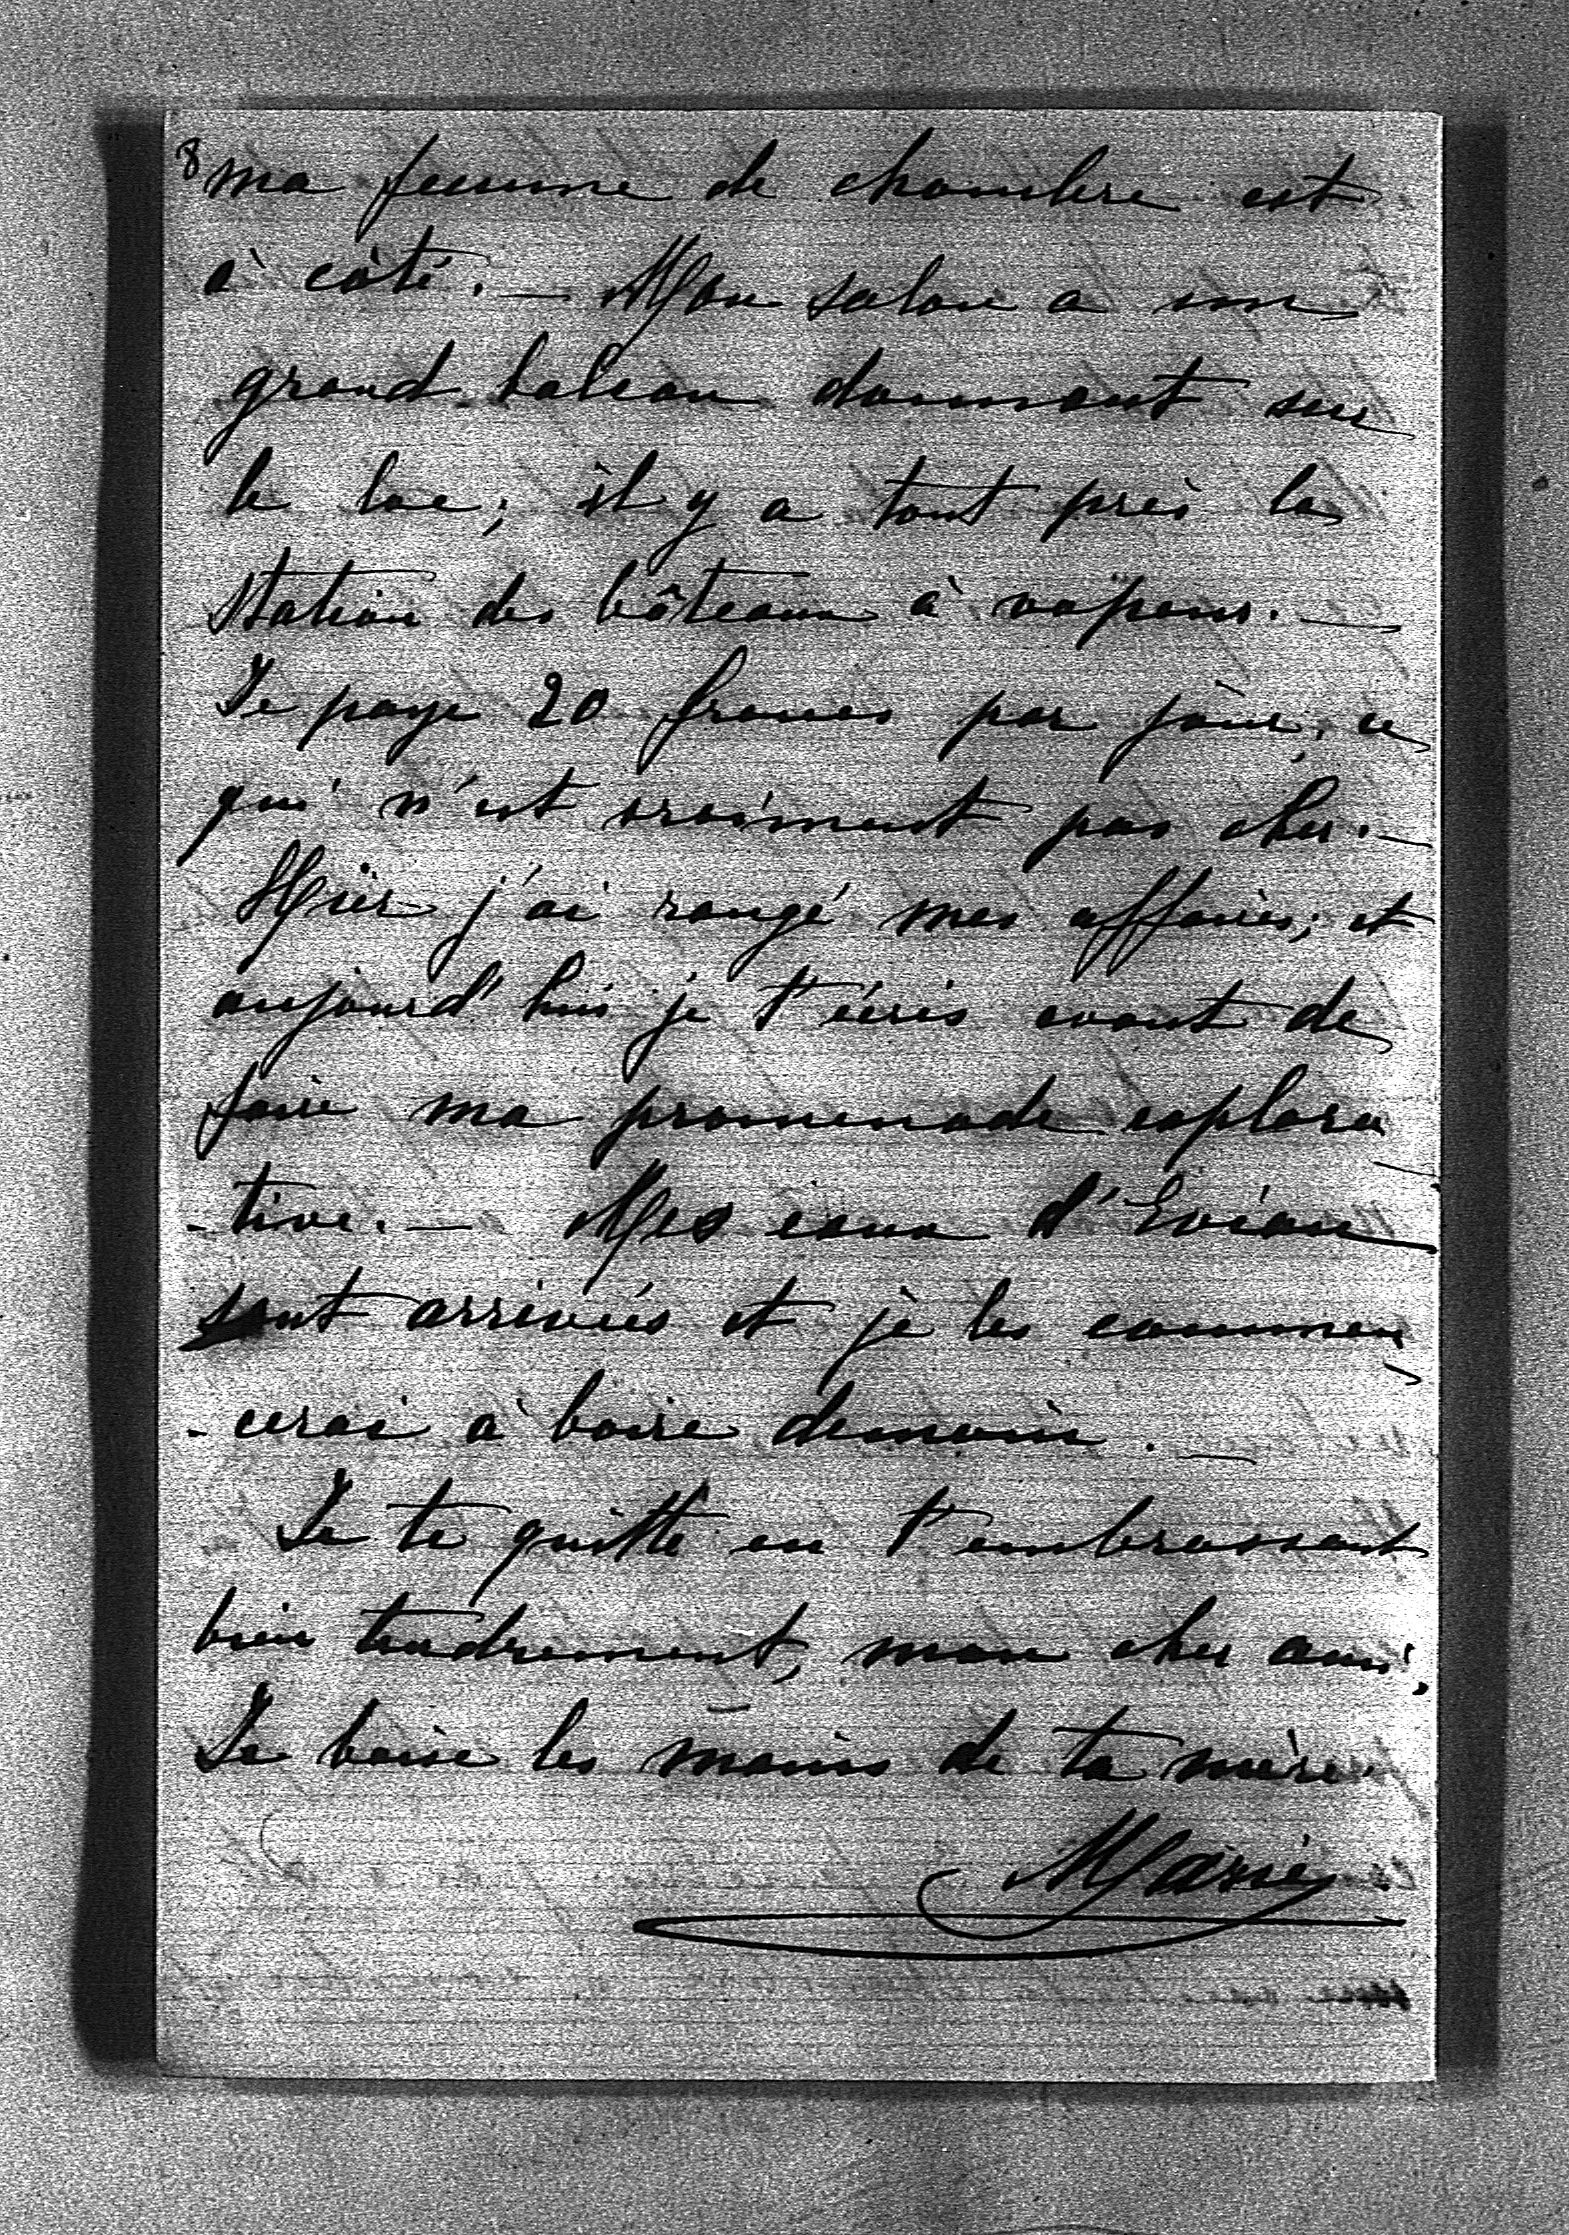 8
ma femme de chambre est
à côté. — Mon salon a un
grand balcon donnant sur
le lac; il y a tout près la
station des bâteaux à vapeur. —
Je paye 20 francs par jour, ce
qui n'est vraiment pas cher. —
Hier j'ai rangé mes affaires; et
aujourd'hui je t'écris avant de
faire ma promenade explora-
-tive. — Mes eaux d'Evian
sont arrivées et je les commen-
-cerai à boire demain. —
Je te quitte en t'embrassant
bien tendrement, mon cher ami.
Je baise les mains de ta mère.
Marie